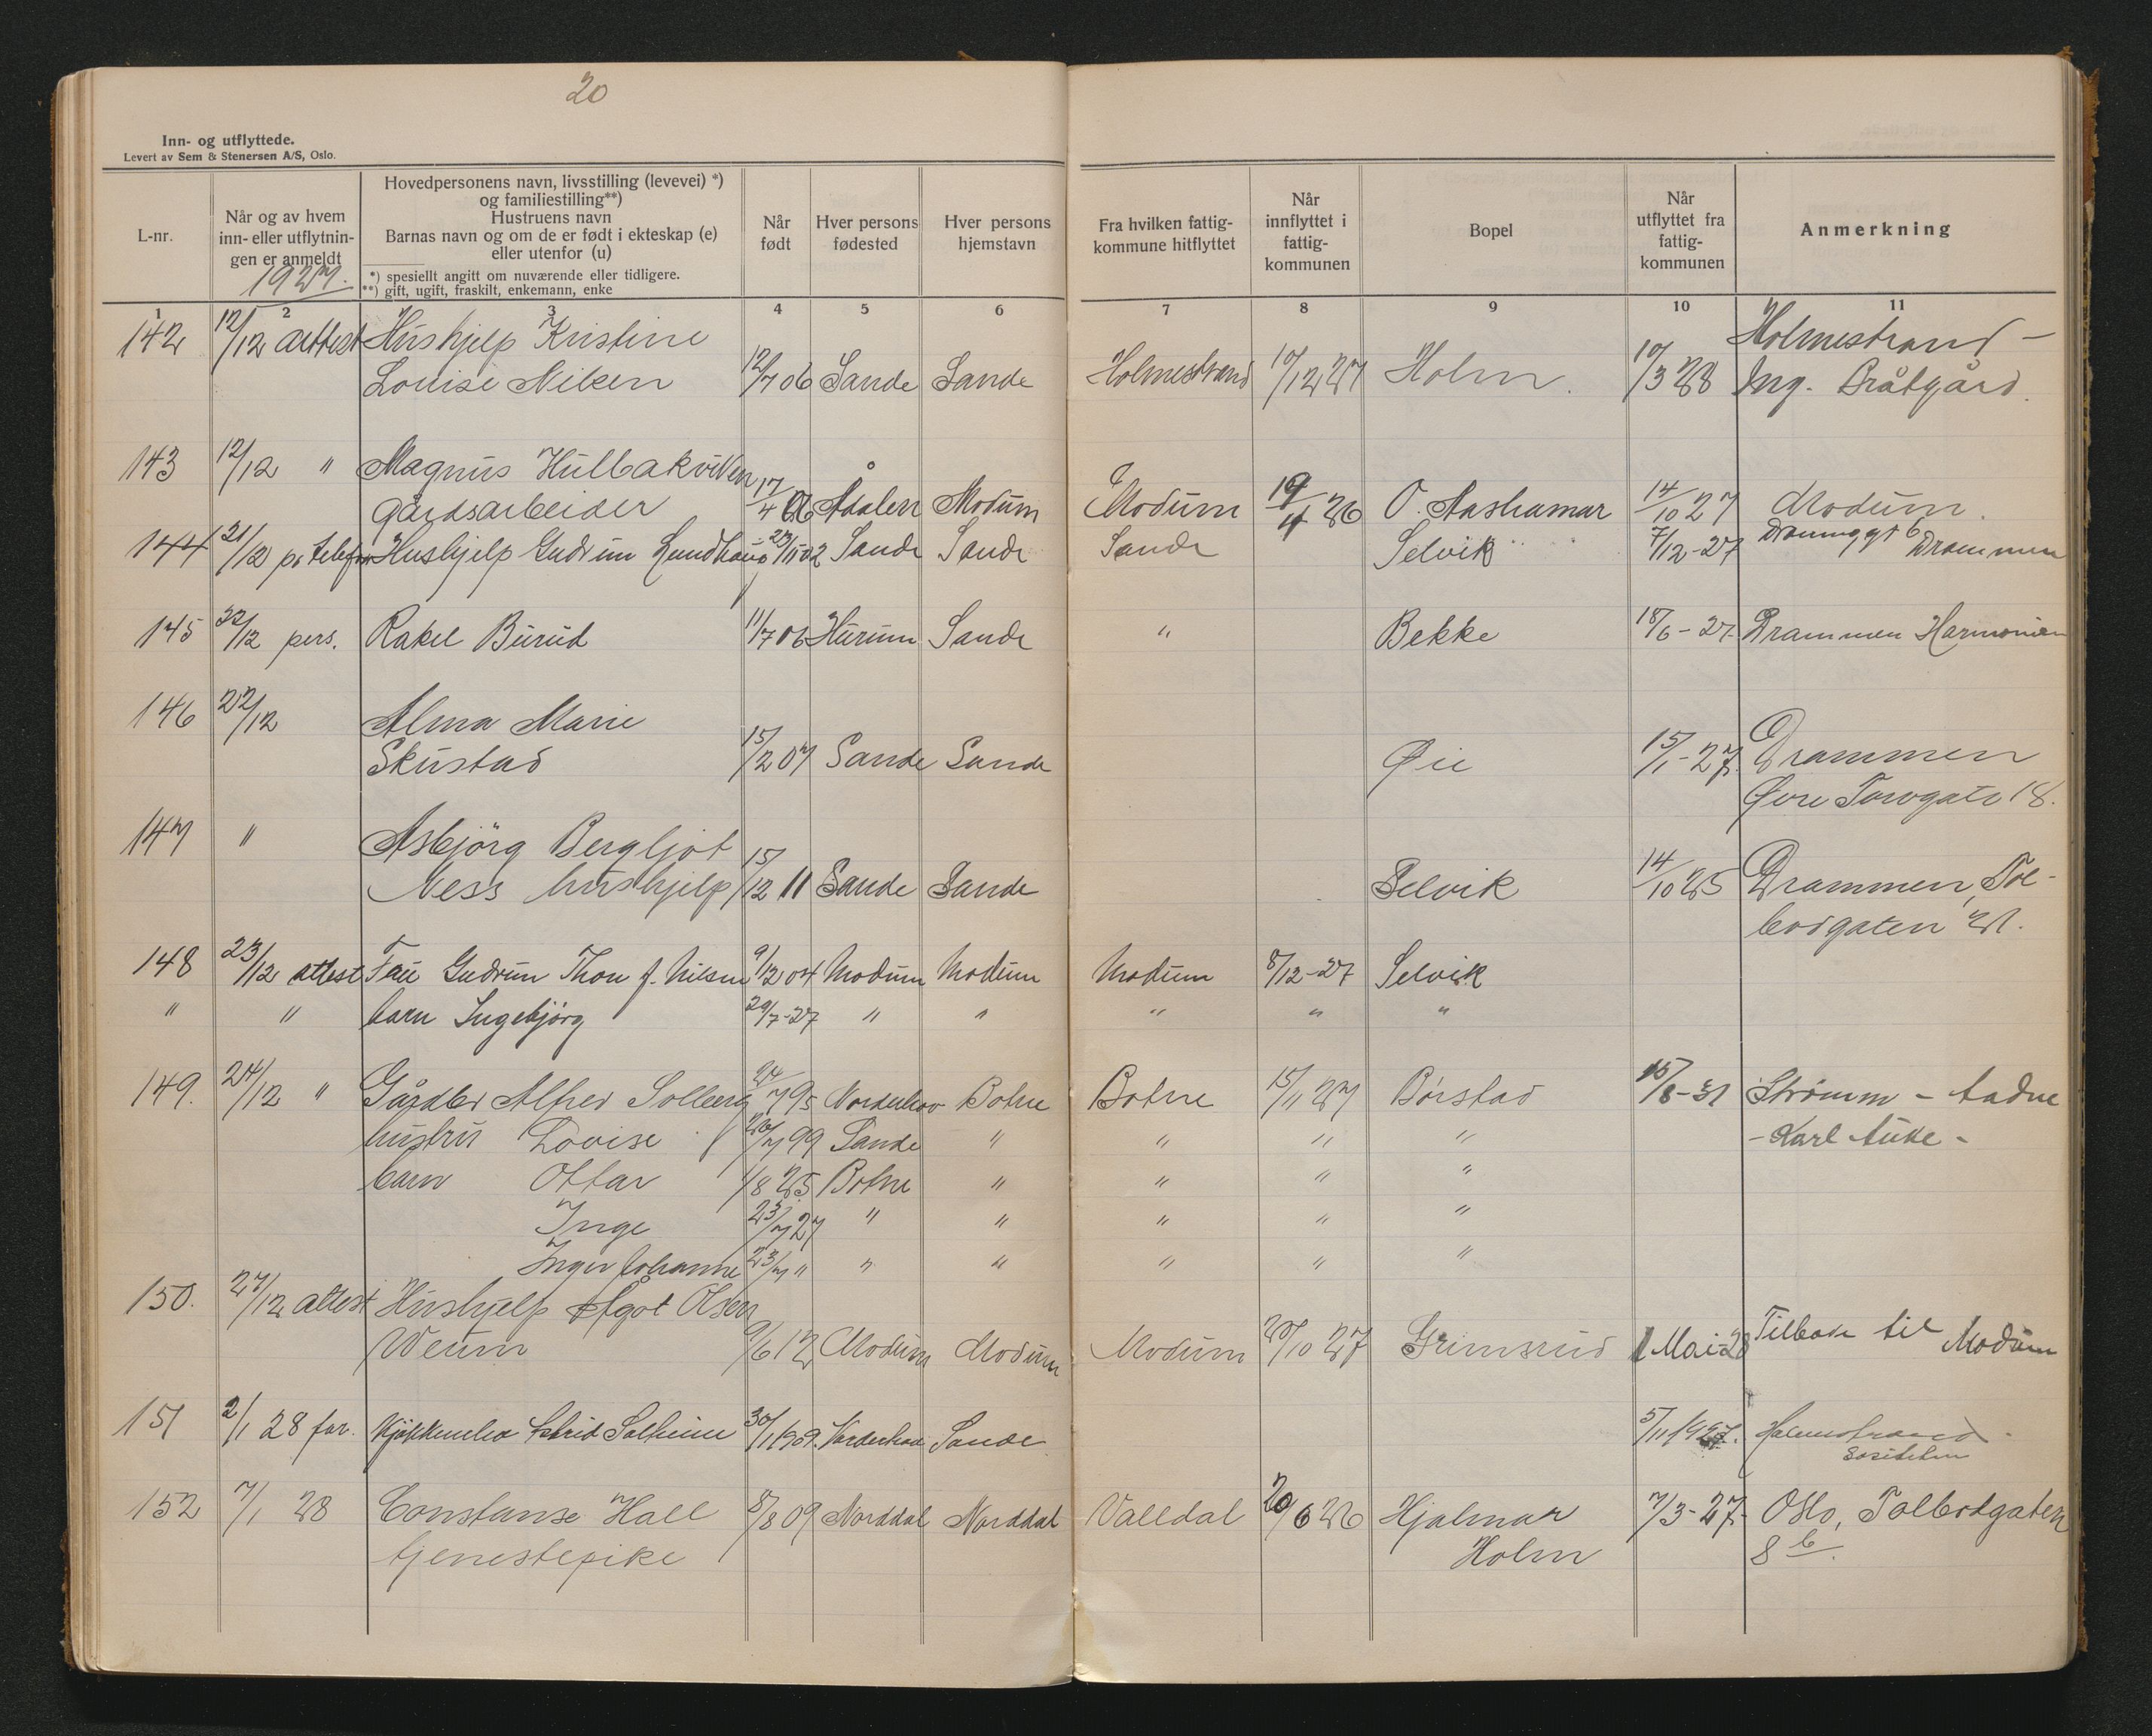 20
Inn- og utflyttede.
Levert av Sem & Stenersen A/S, Oslo.
L-nr.
Når og av hvem
inn- eller utflytnin-
gen er anmeldt
1927.
Hovedpersonens navn, livsstilling (levevei) *)
og familiestilling**)
Hustruens navn
Barnas navn og om de er født i ekteskap (e)
eller utenfor (u)
*) spesiellt angitt om nuværende eller tidligere.
**) gift, ugift, fraskilt, enkemann, enke
Når
født
Hver persons
fødested
Hver persons
hjemstavn
Fra hvilken fattig-
kommune hitflyttet
Når
innflyttet i
fattig-
kommunen
Bopel
Når
utflyttet fra
fattig-
kommunen
Anmerkning
1 2 3 4 5 6 7 8 9 10 11
142 12/12 attest Hushjelp Kristine Holmestrand -
Louise Niken 12/7 06 Sande Sande Holmestrand 10/12 27 Holm. 10/3 28 Ing.
143 12/12 " Magnus
gårdsarbeider 17/4 06 Ådalen Modum Modum 26 O. Aashamar 14/10 27 Modum.
144 21/12 pr telefon Hushjelp Gudrun 23/11 02 Sande Sande Sande Selvik 7/12-27 Dronninggt 6 Drammen
145 22/12 pers. Rakel Burud 11/7 06 Hurum Sande " Bekke 18/6-27. Drammen Harmonien
146 22/12 Alma Marie
Skustad 15/2 07 Sande Sande Øie 15/1-27. Drammen
Øvre Torvgate 18.
147 " Asbjörg Bergljot
Ness hushjelp 15/12 11 Sande Sande Selvik 14/10 25 Drammen, Tol-
bodgaten 21.
148 23/12 attest Fru Gudrun Thon f. Nilsen 9/12 04 Modum Modum Modum 8/12-27 Selvik
" " barn Ingebjörg 29/7-27 " " " " "
149. 24/12 " Gårdbr Alfred Solberg 24/7 95 Norderhov Botne Botne 15/11 27 Børstad 15/8-31 Strømm - Aadne
hustru Lovise 20/7 99 Sande " " " " - Karl Auke -
barn Ottar 1/8 25 Botne " " " "
Inge 23/7 27 " " " " "
Inger Johanne 23/7 " " " " " "
150. 27/12 attest Hushjelp Ågot Olsen
Weum 9/6 12 Modum Modum Modum 20/10 27 Grimsrud 1 Mai-28 Tilbake til Modum
151 2/1 28 far. Astrid Solheim 30/1 1909. Norderhov Sande 5/11 1927. Holmestrand.
152 7/1 28 Constanse Hall 8/8 09 Norddal Norddal Valldal 20/6 26 Hjalmar 7/3-27. Oslo, Tolbodgaten
tjenestepike Holm 8 b.